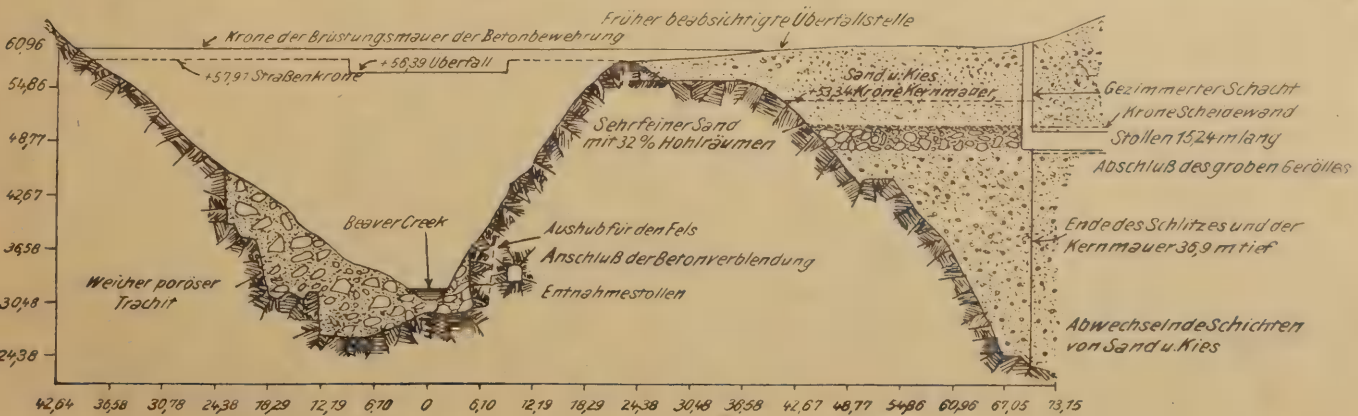 Früher beabsichtigte Überfallstelle
Krone der Brüstungsmauer der Betonbewehrung
+57,91 Straßenkrone
+56,39 Überfall
Sand u. Kies
+53,34 Krone Kernmauer
Gezimmerter Schacht
Krone Scheidewand
Stollen 15,24 m lang
Abschluß des groben Gerölles
Sehr feiner Sand
mit 32% Hohlräumen
Beaver Creek
Aushub für den Fels
Anschluß der Betonverblendung
Entnahmestollen
Weicher poröser
Trachit
Ende des Schlitzes und der
Kernmauer 36,9 m tief
Abwechselnde Schichten
von Sand u. Kies
60,96
54,86
48,77
42,67
36,58
30,48
24,38
42,64 36,58 30,78 24,38 18,29 12,79 6,10 0 6,10 12,19 18,29 24,38 30,48 36,58 42,67 48,77 54,86 60,96 67,05 73,15